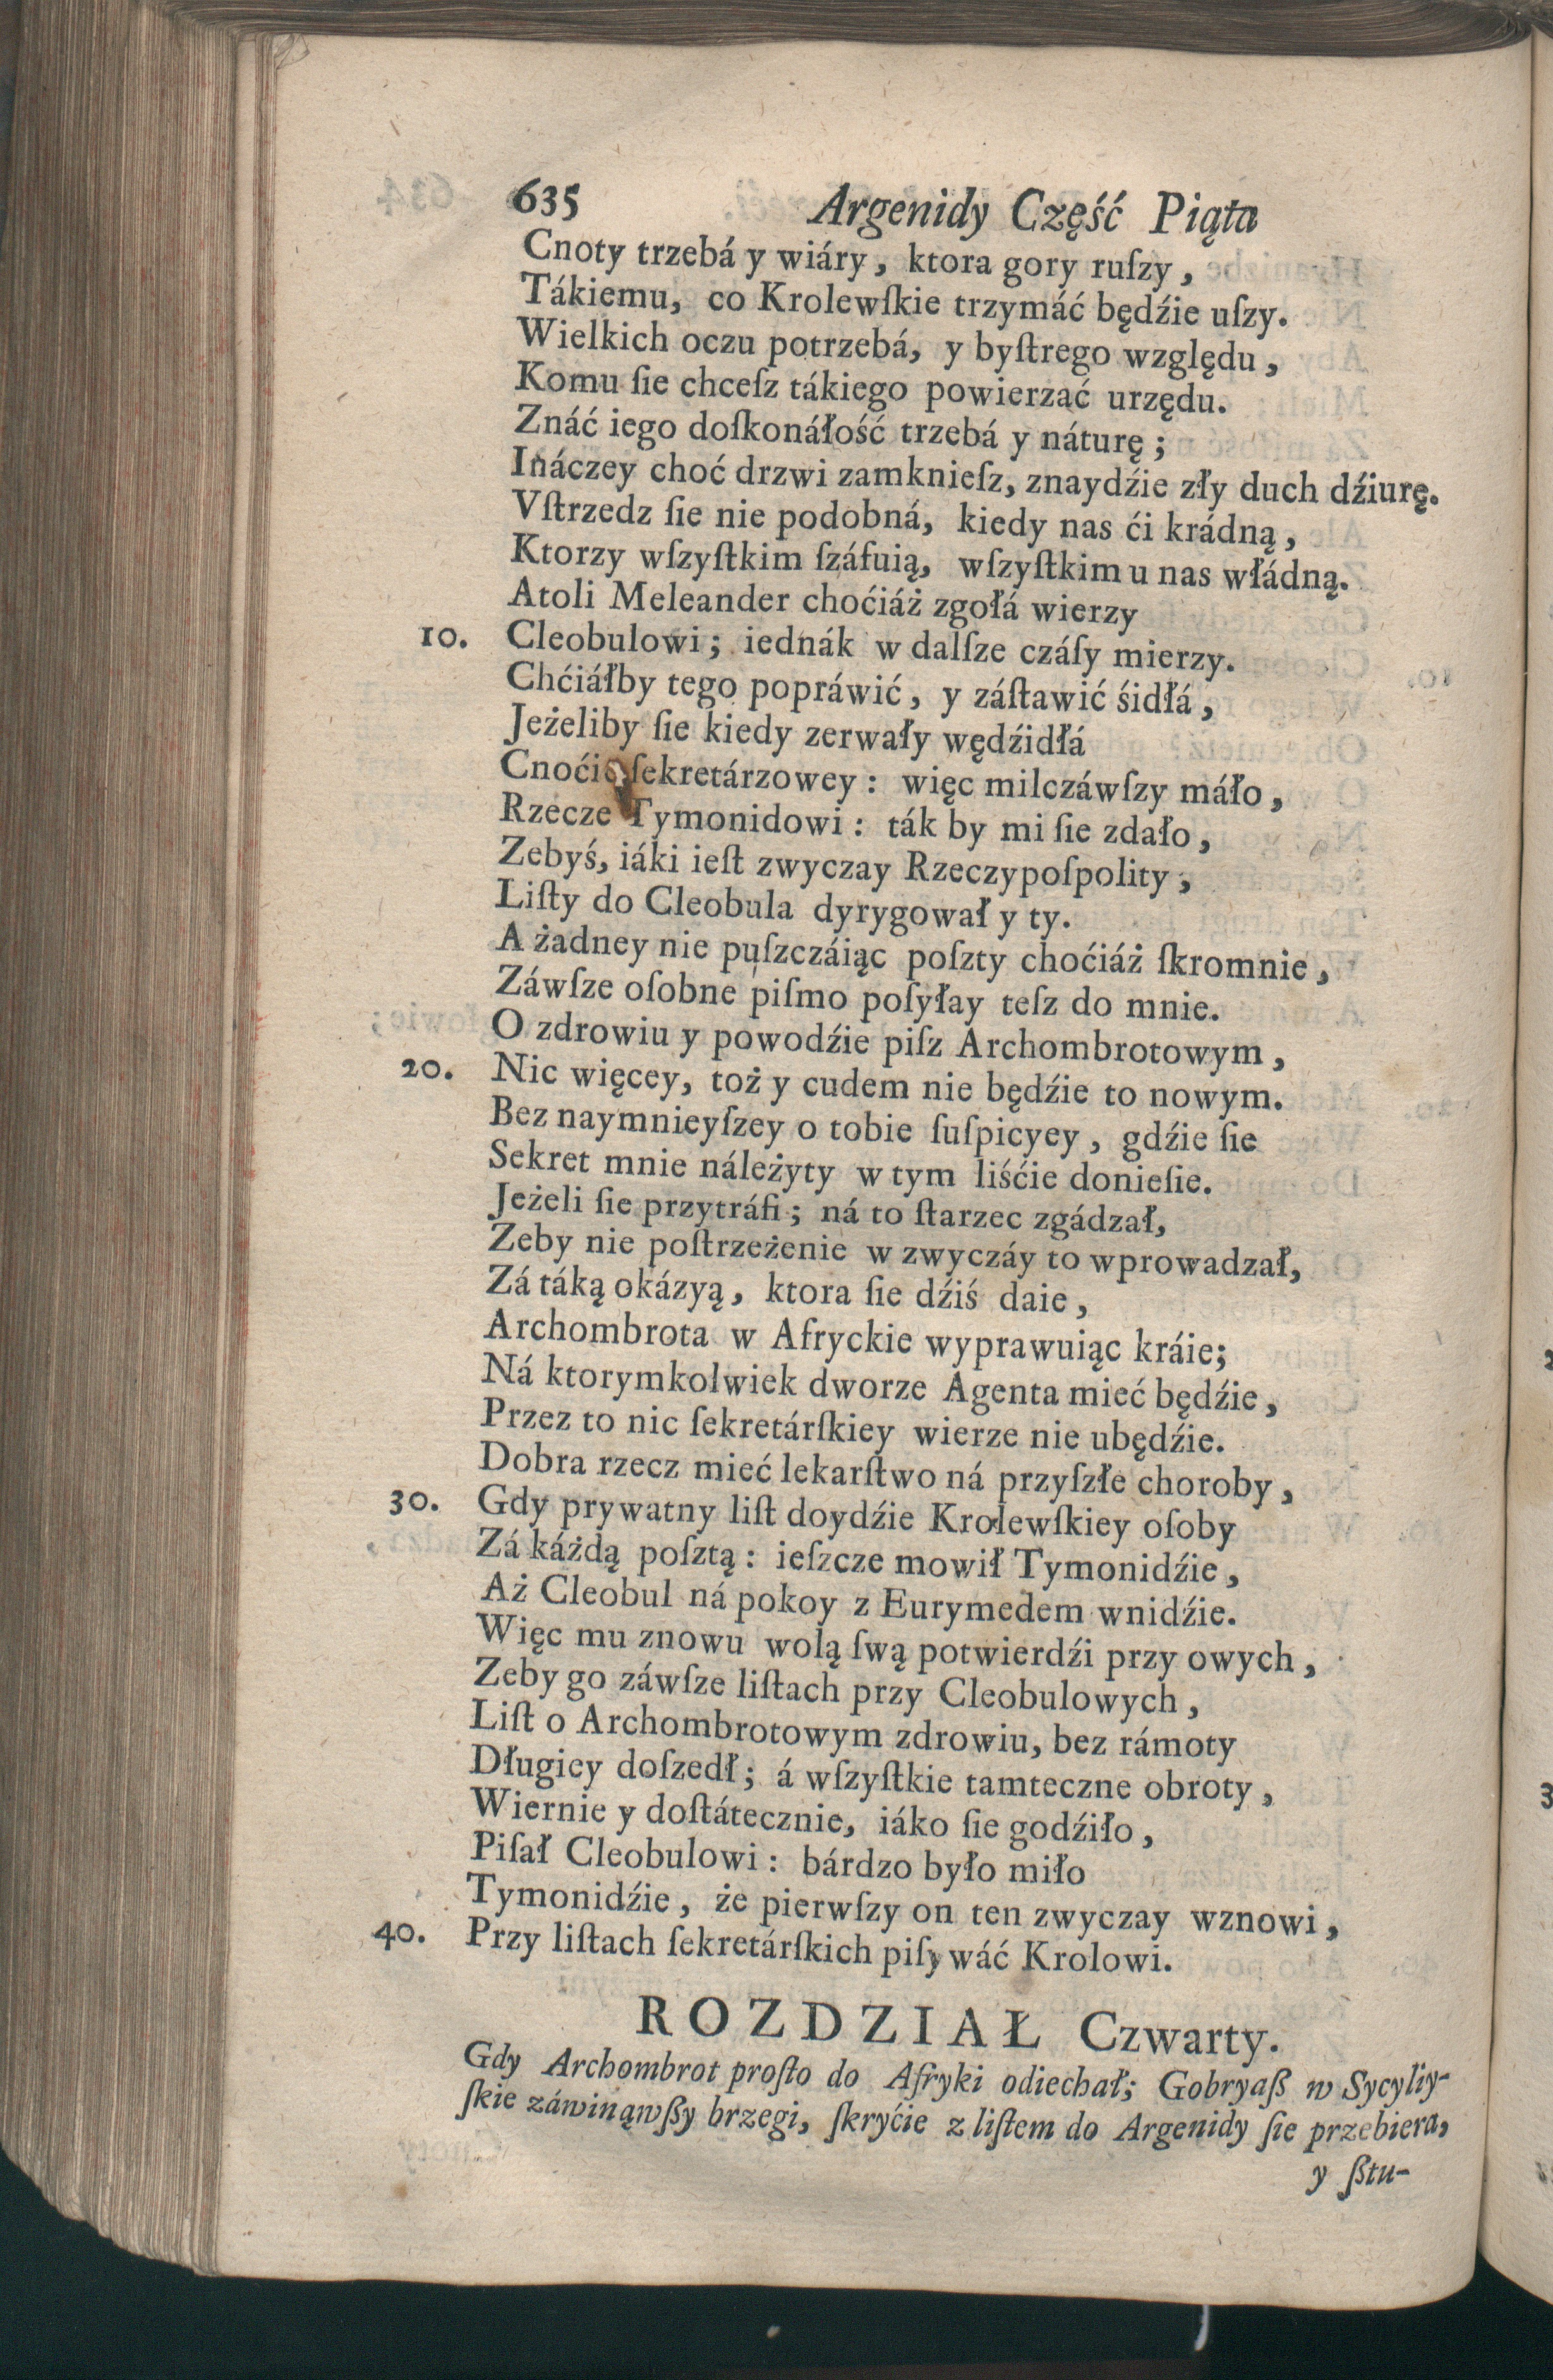 635 Argenidy Część Piąta
Cnoty trzebá y wiáry, ktora gory ruſzy,
Tákiemu, co Krolewſkie trzymáć będźie uſzy.
Wielkich oczu potrzebá, y byſtrego względu,
Komu ſie chceſz tákiego powierzać urzędu.
Znáć iego doſkonáłość trzebá y náturę;
Ináczey choć drzwi zamknieſz, znaydźie zły duch dźiurę.
Vſtrzedz ſie nie podobná, kiedy nas ći krádną,
Ktorzy wſzyſtkim ſzáfuią, wſzyſtkim u nas włádną.
Atoli Meleander choćiáż zgołá wierzy
10. Cleobulowi; iednák w dalſze czáſy mierzy.
Chćiáłby tego popráwić, y záſtawić śidłá,
Jeżeliby ſie kiedy zerwały wędźidłá
Cnoćie ſekretárzowey: więc milczáwſzy máło,
Rzecze Tymonidowi: ták by mi ſie zdało,
Zebyś, iáki ieſt zwyczay Rzeczypoſpolity,
Liſty do Cleobula dyrygował y ty.
A żadney nie puſzczáiąc poſzty choćiáż ſkromnie,
Záwſze oſobne piſmo poſyłay teſz do mnie.
O zdrowiu y powodźie piſz Archombrotowym,
20. Nic więcey, toż y cudem nie będźie to nowym.
Bez naymnieyſzey o tobie ſuſpicyey, gdźie ſie
Sekret mnie náleżyty w tym liśćie donieſie.
Jeżeli ſie przytráfi; ná to ſtarzec zgádzał,
Zeby nie poſtrzeżenie w zwyczáy to wprowadzał,
Zá táką okázyą, ktora ſie dźiś daie,
Archombrota w Afryckie wyprawuiąc kráie;
Ná ktorymkolwiek dworze Agenta mieć będźie,
Przez to nic ſekretárſkiey wierze nie ubędźie.
Dobra rzecz mieć lekarſtwo ná przyſzłe choroby,
30. Gdy prywatny liſt doydźie Krolewſkiey oſoby
Zá káżdą poſztą: ieſzcze mowił Tymonidźie,
Aż Cleobul ná pokoy z Eurymedem wnidźie.
Więc mu znowu wolą ſwą potwierdźi przy owych,
Zeby go záwſze liſtach przy Cleobulowych,
Liſt o Archombrotowym zdrowiu, bez rámoty
Długiey doſzedł; á wſzyſtkie tamteczne obroty,
Wiernie y doſtátecznie, iáko ſie godźiło,
Piſał Cleobulowi: bárdzo było miło
Tymonidźie, że pierwſzy on ten zwyczay wznowi,
40. Przy liſtach ſekretárſkich piſywáć Krolowi.
ROZDZIAŁ Czwarty.
Gdy Archombrot proſto do Afryki odiechał; Gobryaß w Sycyliy-
ſkie záwinąwßy brzegi, ſkryćie z liſtem do Argenidy ſie przebiera,
y ßtu-